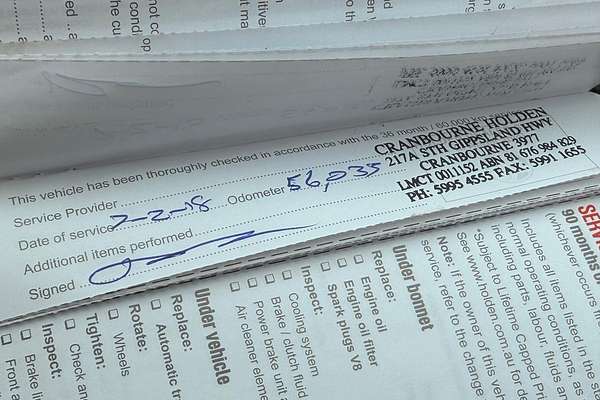 This vehicle has been thoroughly checked in accordance with the 36 month / 60,000 k
Service Provider
Date of service 7-2-18 Odometer 56,035
Additional items performed
Signed
CRANBOURNE HOLDEN
217A STH GIPPSLAND HWY
CRANBOURNE 3977
LMCT 0011152 ABN 81 676 984 829
PH: 5995 4555 FAX: 5991 1655
SERV
90 months o
(whichever occurs fi
Includes all items listed in the
normal operating conditions, as
including parts, labour, fluids an
*Subject to Lifetime Capped Pri
See www.holden.com.au for de
Note: If the owner of this veh
service, refer to the change
Under bonnet
Replace:
Engine oil
Engine oil filter
Spark plugs V8
Inspect:
Cooling system
Brake / clutch fluid
Power brake unit a
Air cleaner eleme
Under vehicle
Replace:
Automatic tra
Rotate:
Wheels
Tighten:
Check and
Inspect:
Brake line
Front a